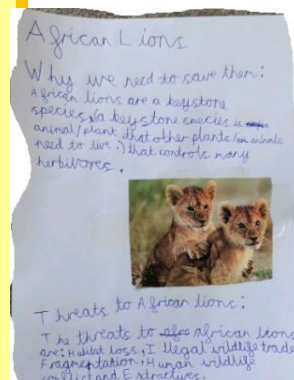 African Lions
Why we need to save them:
African lions are a keystone
species, (a keystone species is
animal/plant that other plants/animals
need to live:) that controls many
herbivores.
Threats to African lions:
The threats to african lions
are: Habitat loss, Illegal wildlife trade
Fragmentation, Human wildlife
conflict and Extractives